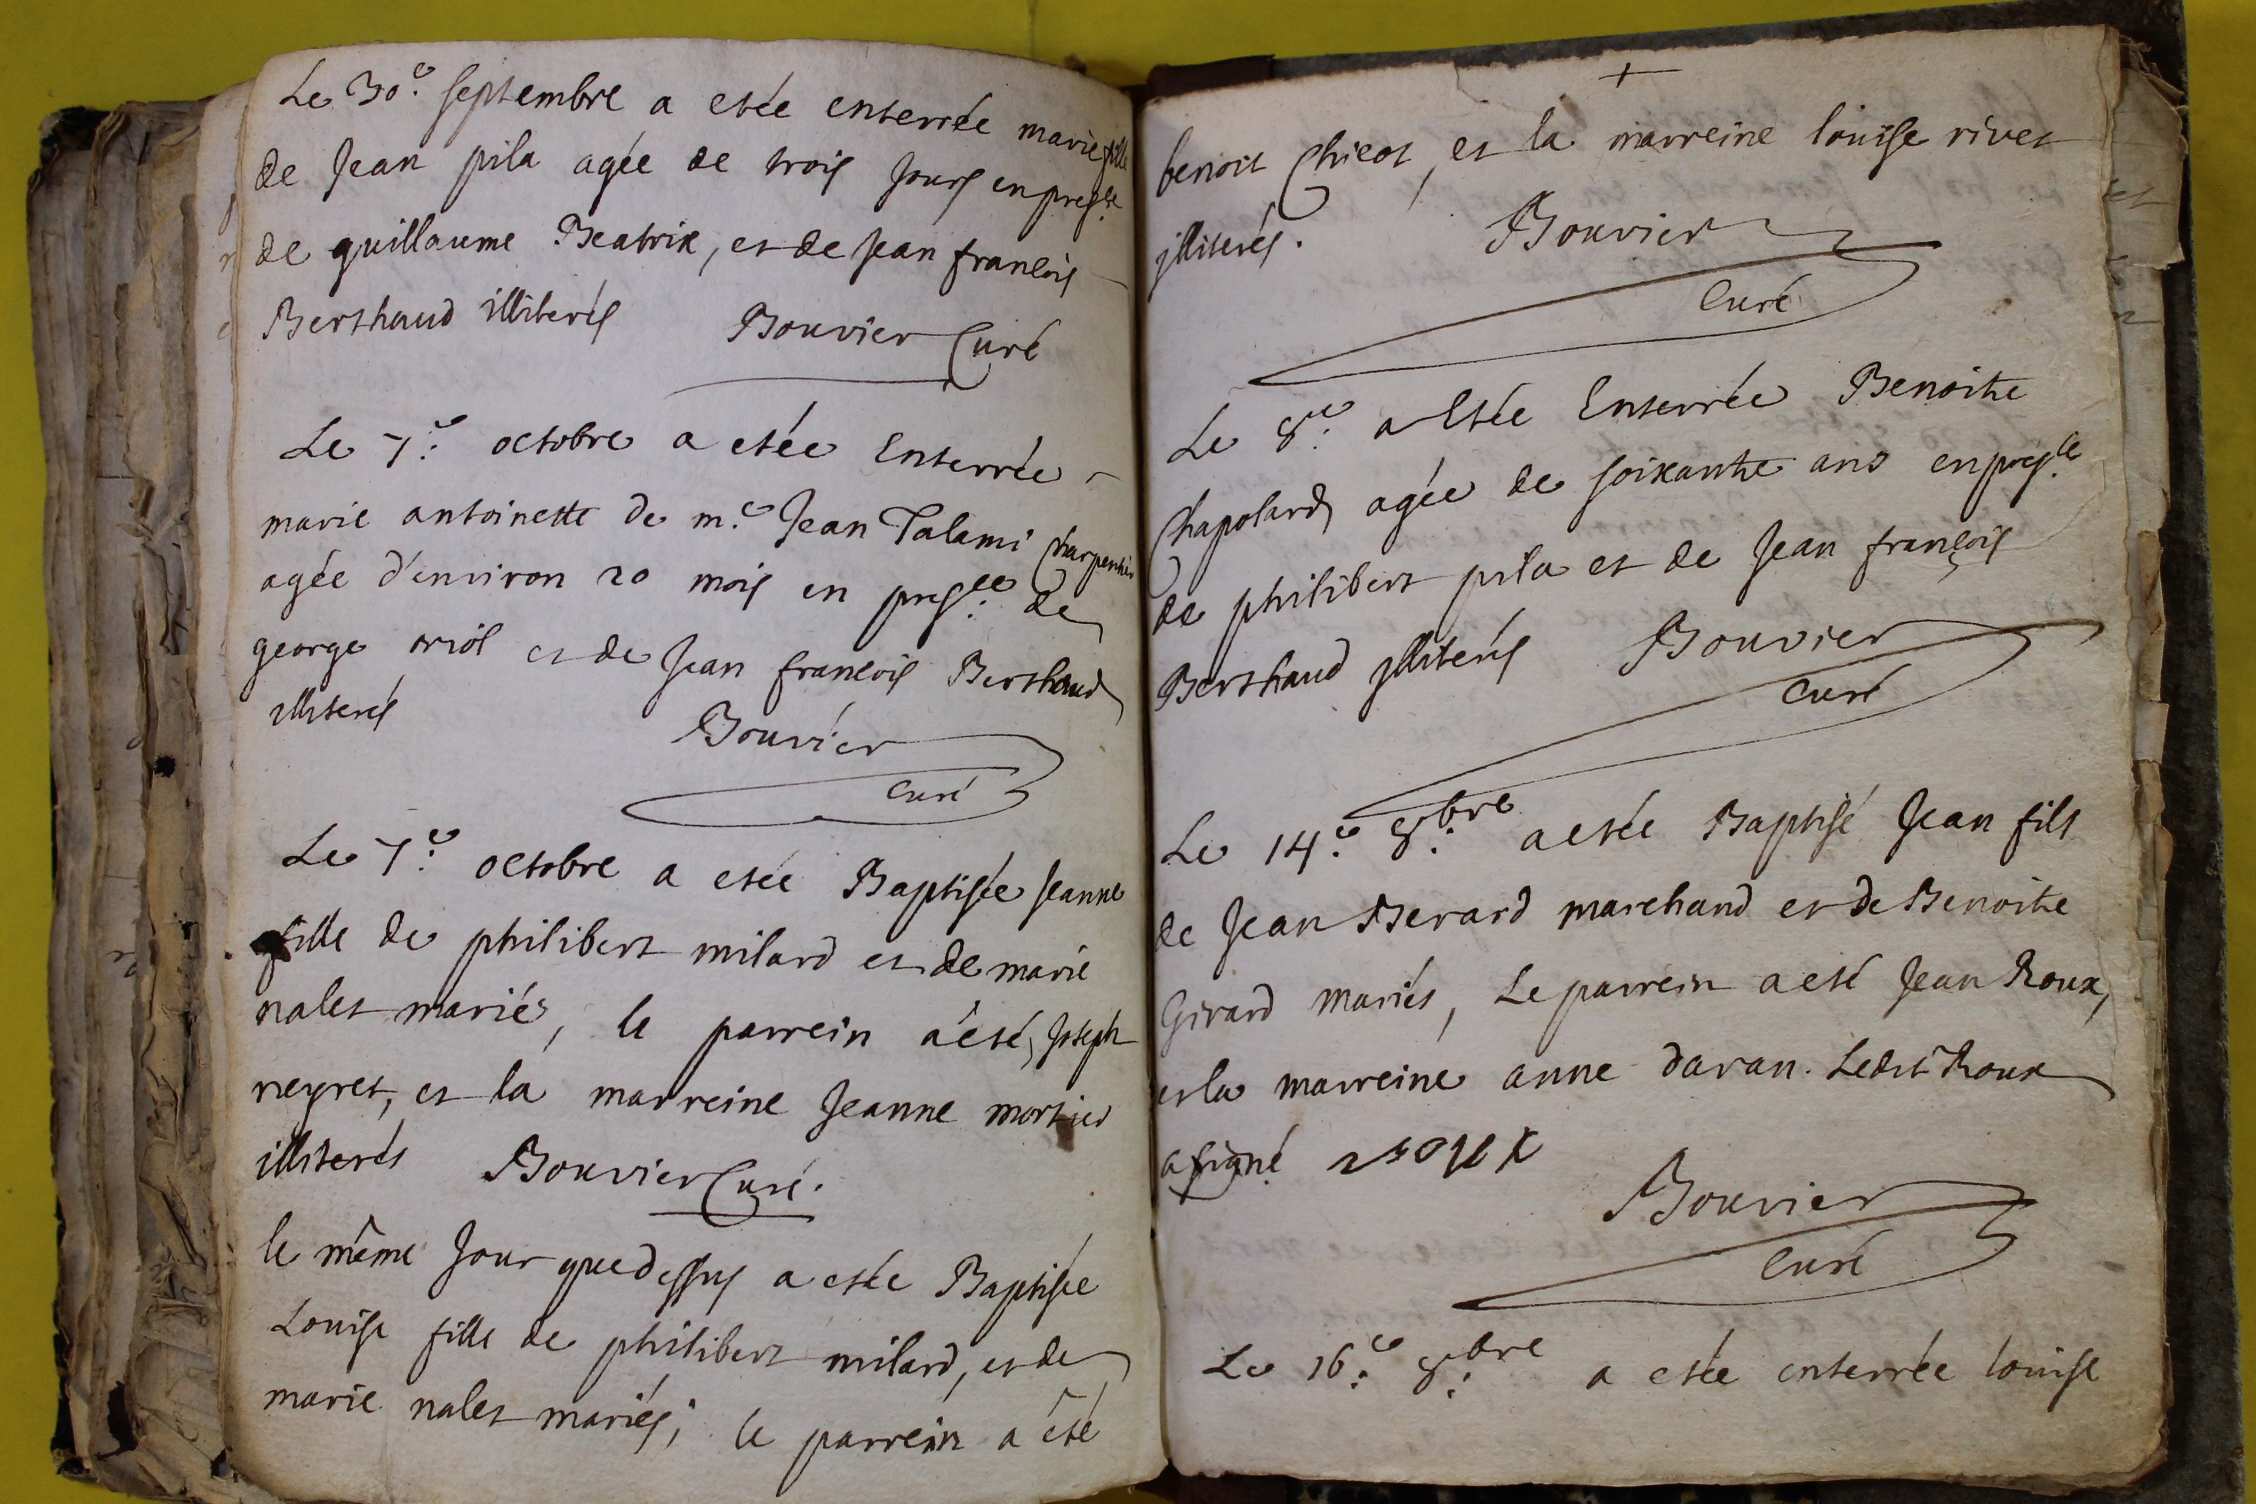 Le 30.e septembre a etée enterrée marie fille
de Jean pila agée de trois Jours en pres.ce
de guillaume Beatrix, et de Jean francois
Berthaud illiterés Bouvier Curé
Le 7.e octobre a etée Enterrée
marie antoinette de m.e Jean Talami Charpentier
agée d'environ 20 mois en pres.ce de
george oriol et de Jean francois Berthaud
illiterés
Bouvier
Curé
Le 7.e octobre a etée Baptisée Jeanne
fille de philibert milard et de marie
nalet mariés, le parrein a été, Joseph
neyret, et la marreine Jeanne mortier
illiterés Bouvier Curé.
le même Jour que dessus a etée Baptisée
Louise fille de philibert milard, et de
marie nalet mariés; le parrein a été
+
benoit Chicot, et la marreine louise rivet
jlliterés. Bouvier
Curé
Le 8.e a Etée Enterrée Benoite
Chapolard, agée de soixante ans en pres.ce
de philibert pila et de Jean françois
Berthaud jlliterés Bouvier
Curé
Le 14.e 8.bre a etée Baptisé Jean fils
de Jean Berard marchand et de Benoite
Girard mariés, Le parrein a eté Jean Roux,
et la marreine anne davan. Ledit Roux
a signé roux
Bouvier
Curé
Le 16.e 8.bre a etée enterrée louise